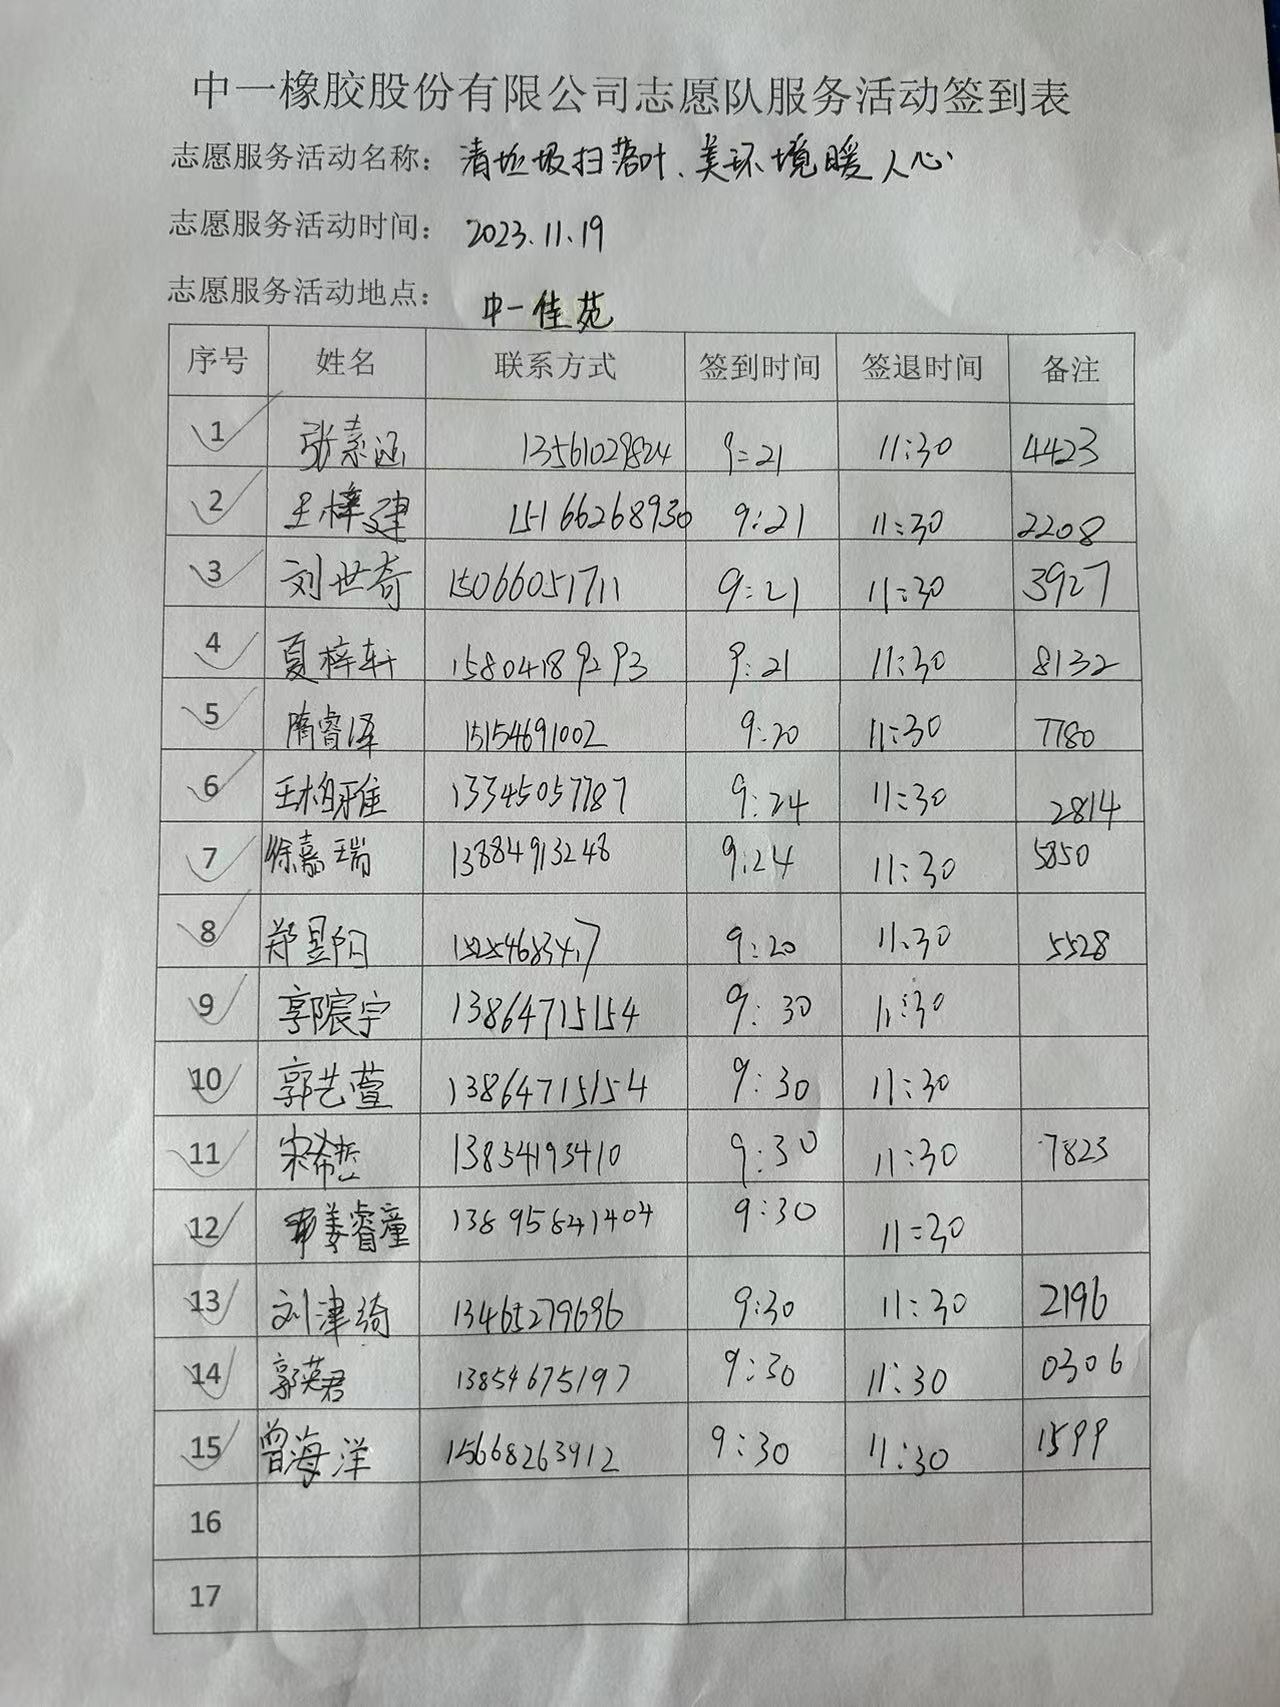 中一橡胶股份有限公司志愿队服务活动签到表
志愿服务活动名称：清垃圾扫落叶、美环境暖人心
志愿服务活动时间：2023.11.19
志愿服务活动地点：中一佳苑
序号 姓名 联系方式 签到时间 签退时间 备注
1 张素涵 13561029824 9:21 11:30 4423
2 王梓建 15166268930 9:21 11:30 2208
3 刘世奇 15066051711 9:21 11:30 3927
4 夏梓轩 15804189293 9:21 11:30 8132
5 隋睿泽 15154691002 9:20 11:30 7780
6 王柏雅 13345057787 9:24 11:30 2814
7 徐嘉瑞 13884913248 9:24 11:30 5850
8 郑昱阳 9:20 11:30 5528
9 郭宸宇 13864715154 9:30 11:30
10 郭艺萱 13864715154 9:30 11:30
11 宋希哲 13834193410 9:30 11:30 7823
12 姜睿童 13895841404 9:30 11:30
13 刘津琦 13465279696 9:30 11:30 2196
14 郭英君 13854675197 9:30 11:30 0306
15 曾海洋 15668263912 9:30 11:30 1599
16
17